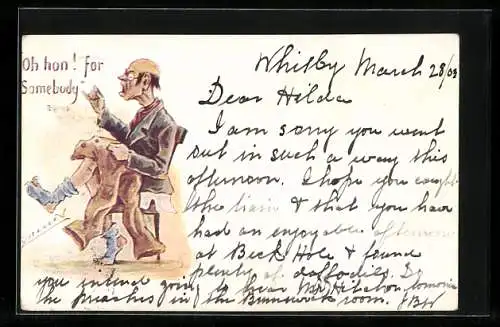 Oh hon! for
Somebody
Whitby March 28/03
Dear Hilda
I am sorry you went
out in such a way this
afternoon. I hope you caught
the train & that you have
had an enjoyable afternoon
at Beck Hole & found
plenty of daffodils. Do
you intend going to hear Mr tomorrow
He preaches in the Brunswick room. JBW